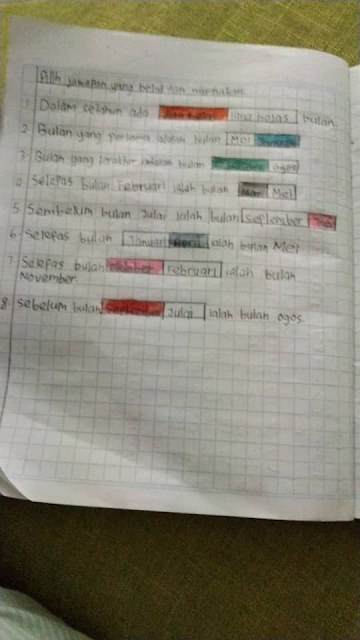 Pilih jawapan yang betul dan warnakan.
1 Dalam setahun ada dua belas lima belas bulan
2 Bulan yang pertama ialah bulan Mei Januari
3 Bulan yang terakhir adalah bulan ogos
4 Selepas bulan Februari ialah bulan Mac Mei
5 Sembelum bulan Julai ialah bulan september Jun
6 Selepas bulan Januari April ialah bulan Mei
7 Selepas bulan oktober Februari ialah bulan
November.
8 sebelum bulan Julai ialah bulan ogos.